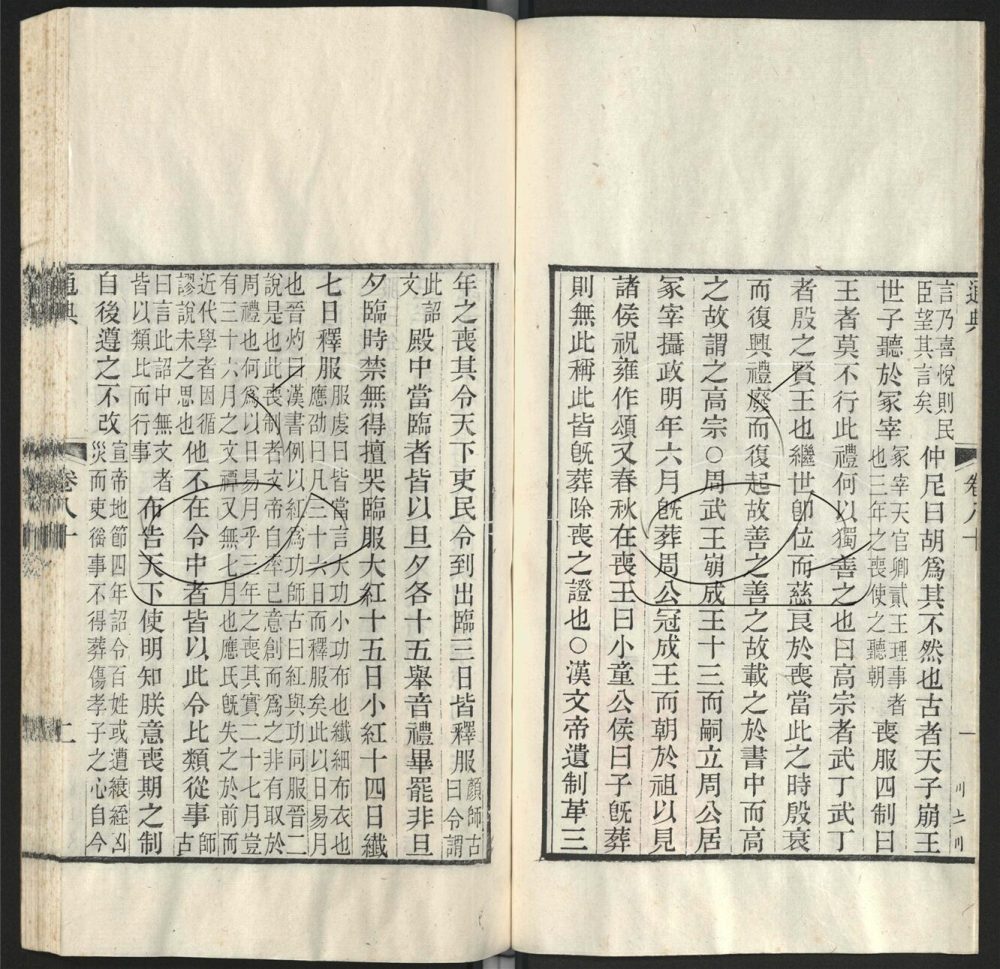 通典
卷八十
一
言乃喜悅則民臣望其言矣仲尼曰胡爲其不然也古者天子崩王
世子聽於冢宰冢宰天官卿貳王理事者也三年之喪使之聽朝喪服四制曰
王者莫不行此禮何以獨善之也曰高宗者武丁武丁
者殷之賢王也繼世卽位而慈良於喪當此之時殷衰
而復興禮廢而復起故善之善之故載之於書中而高
之故謂之高宗○周武王崩成王十三而嗣立周公居
冢宰攝政明年六月旣葬周公冠成王而朝於祖以見
諸侯祝雍作頌又春秋在喪王曰小童公侯曰子旣葬
則無此稱此皆旣葬除喪之證也○漢文帝遺制革三
年之喪其令天下吏民令到出臨三日皆釋服顏師古曰令謂
此詔文殿中當臨者皆以旦夕各十五舉音禮畢罷非旦
夕臨時禁無得擅哭臨服大紅十五日小紅十四日纖
七日釋服服虔曰皆當言大功小功布也纖細布衣也應劭曰凡三十六日而釋服矣此以日易月
也晉灼曰漢書例以紅爲功師古曰紅與功同服晉二說是也此喪制者文帝自率己意創而爲之非有取於
周禮也何爲以日易月乎三年之喪其實二十七月豈有三十六月之文禫又無七月也應氏旣失之於前而
近代學者因循謬說未之思也他不在令中者皆以此令比類從事師古
曰言此詔中無文者皆以類比而行事布告天下使明知朕意喪期之制
自後遵之不改宣帝地節四年詔令百姓或遭縗絰凶災而吏徭事不得葬傷孝子之心自今
通典
卷八十
二